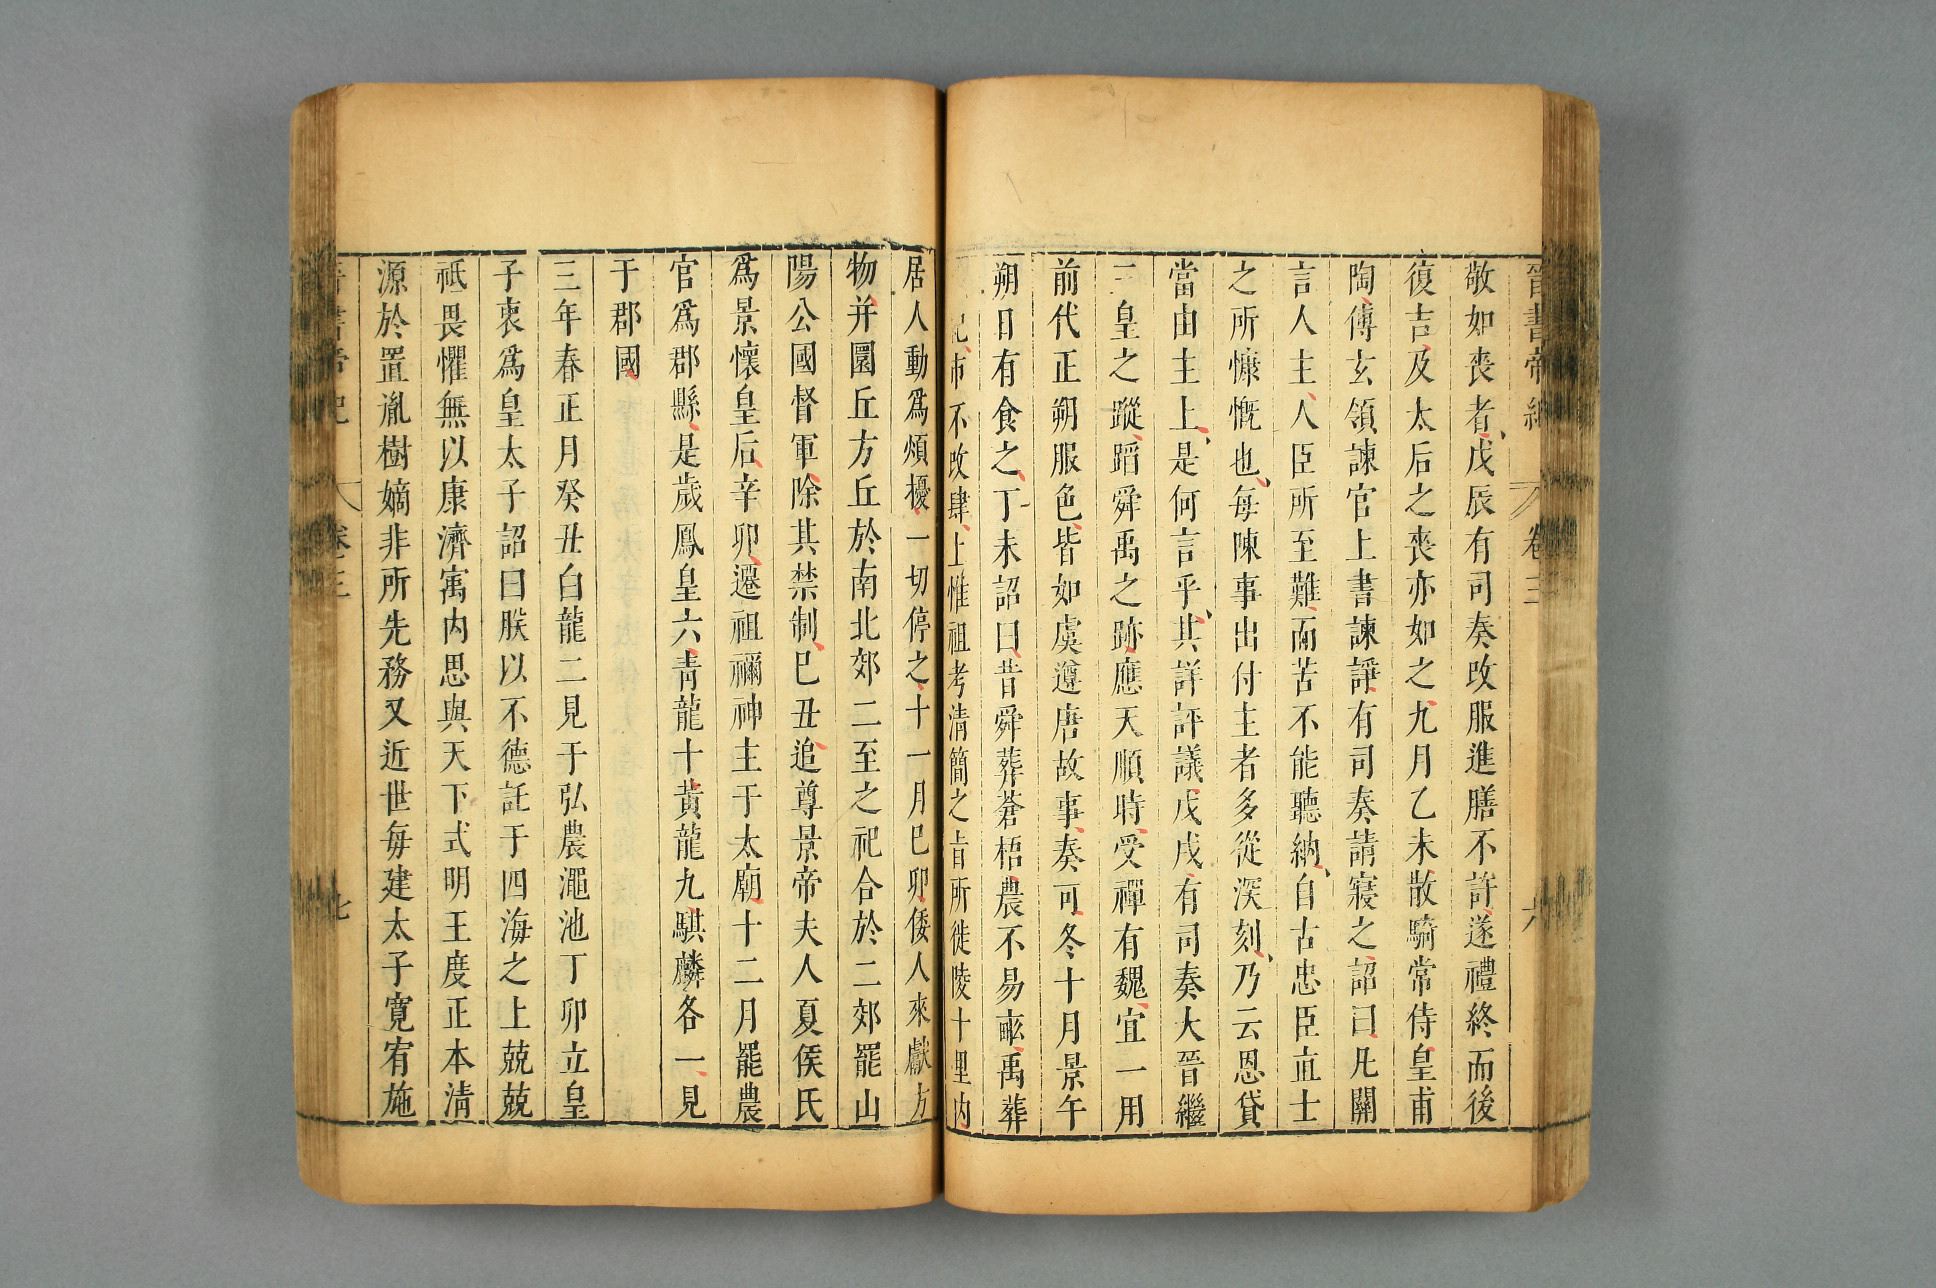 晉書帝紀 卷三 六
敬如喪者戊辰有司奏改服進膳不許遂禮終而後
復吉及太后之喪亦如之九月乙未散騎常侍皇甫
陶傅玄領諫官上書諫諍有司奏請寢之詔曰凡關
言人主人臣所至難而苦不能聽納自古忠臣直士
之所慷慨也每陳事出付主者多從深刻乃云恩貸
當由主上是何言乎其詳評議戊戌有司奏大晉繼
三皇之蹤蹈舜禹之跡應天順時受禪有魏宜一用
前代正朔服色皆如虞遵唐故事奏可冬十月景午
朔日有食之丁未詔曰昔舜葬蒼梧農不易畝禹葬
紀市不改肆上惟祖考清簡之旨所徙陵十里內
居人動爲煩擾一切停之十一月巳卯倭人來獻方
物并圜丘方丘於南北郊二至之祀合於二郊罷山
陽公國督軍除其禁制巳丑追尊景帝夫人夏侯氏
爲景懷皇后辛卯遷祖禰神主于太廟十二月罷農
官爲郡縣是歲鳳皇六靑龍十黃龍九騏麟各一見
于郡國
三年春正月癸丑白龍二見于弘農澠池丁卯立皇
子衷爲皇太子詔曰朕以不德託于四海之上兢兢
祗畏懼無以康濟寓內思與天下式明王度正本清
源於置胤樹嫡非所先務又近世每建太子寬宥施
晉書帝紀 卷三 七